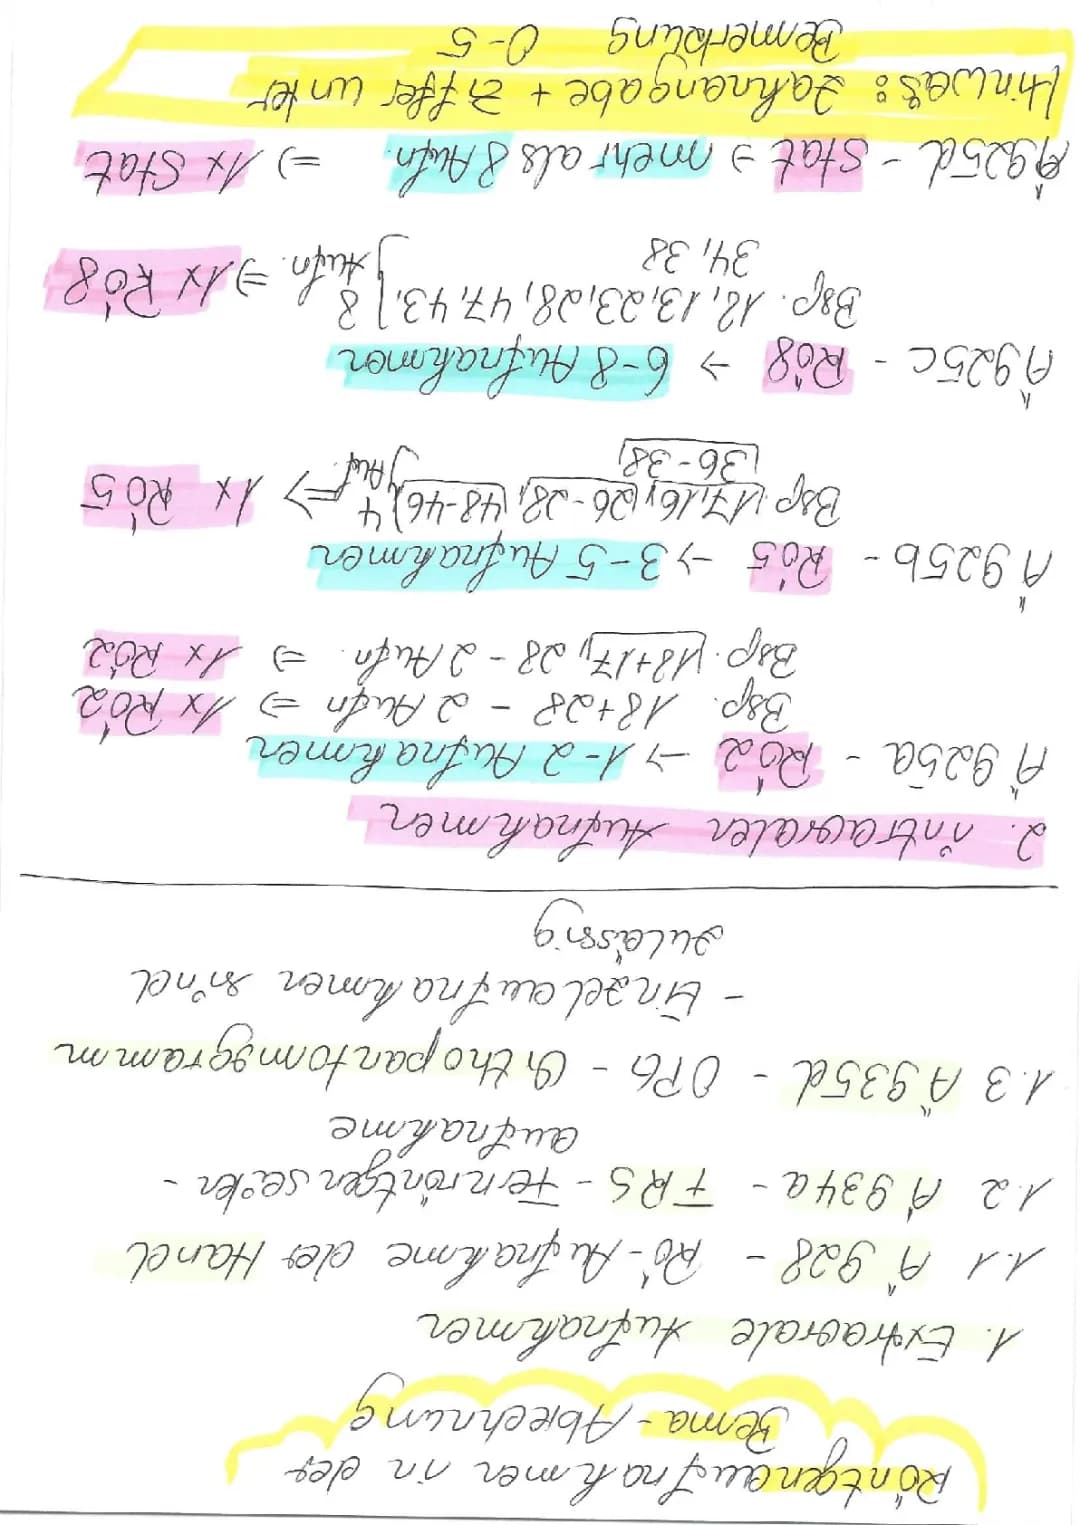 Röntgenaufnahmen in der
Bema-Abrechnung
1. Extraorale Aufnahmen
1.1 Ä 928 - Rö-Aufnahme der Hand
1.2 Ä 934a - FRS - Fernröntgenseiten-
aufnahme
1.3 Ä 935d - OPG - Orthopantomogramm
- Einzelaufnahmen sind
zulässig
2. intraoralen Aufnahmen
Ä 925a - Rö2 → 1-2 Aufnahmen
Bsp. 18+28 - 2 Aufn ⇒ 1x Rö2
Bsp. 18+17, 28 - 2 Aufn. ⇒ 1x Rö2
Ä 925b - Rö5 → 3-5 Aufnahmen
Bsp. 17,16, 26-28, 48-46, } 4 Auf. ⇒ 1x Rö5
36-38
Ä 925c - Rö8 → 6-8 Aufnahmen
Bsp. 18, 13, 23, 28, 47, 43, } 8 Aufn. ⇒ 1x Rö8
34, 38
Ä 925d - Stat → mehr als 8 Aufn. ⇒ 1x Stat
Hinweis: Zahnangabe + Ziffer unter
Bemerkung 0-5